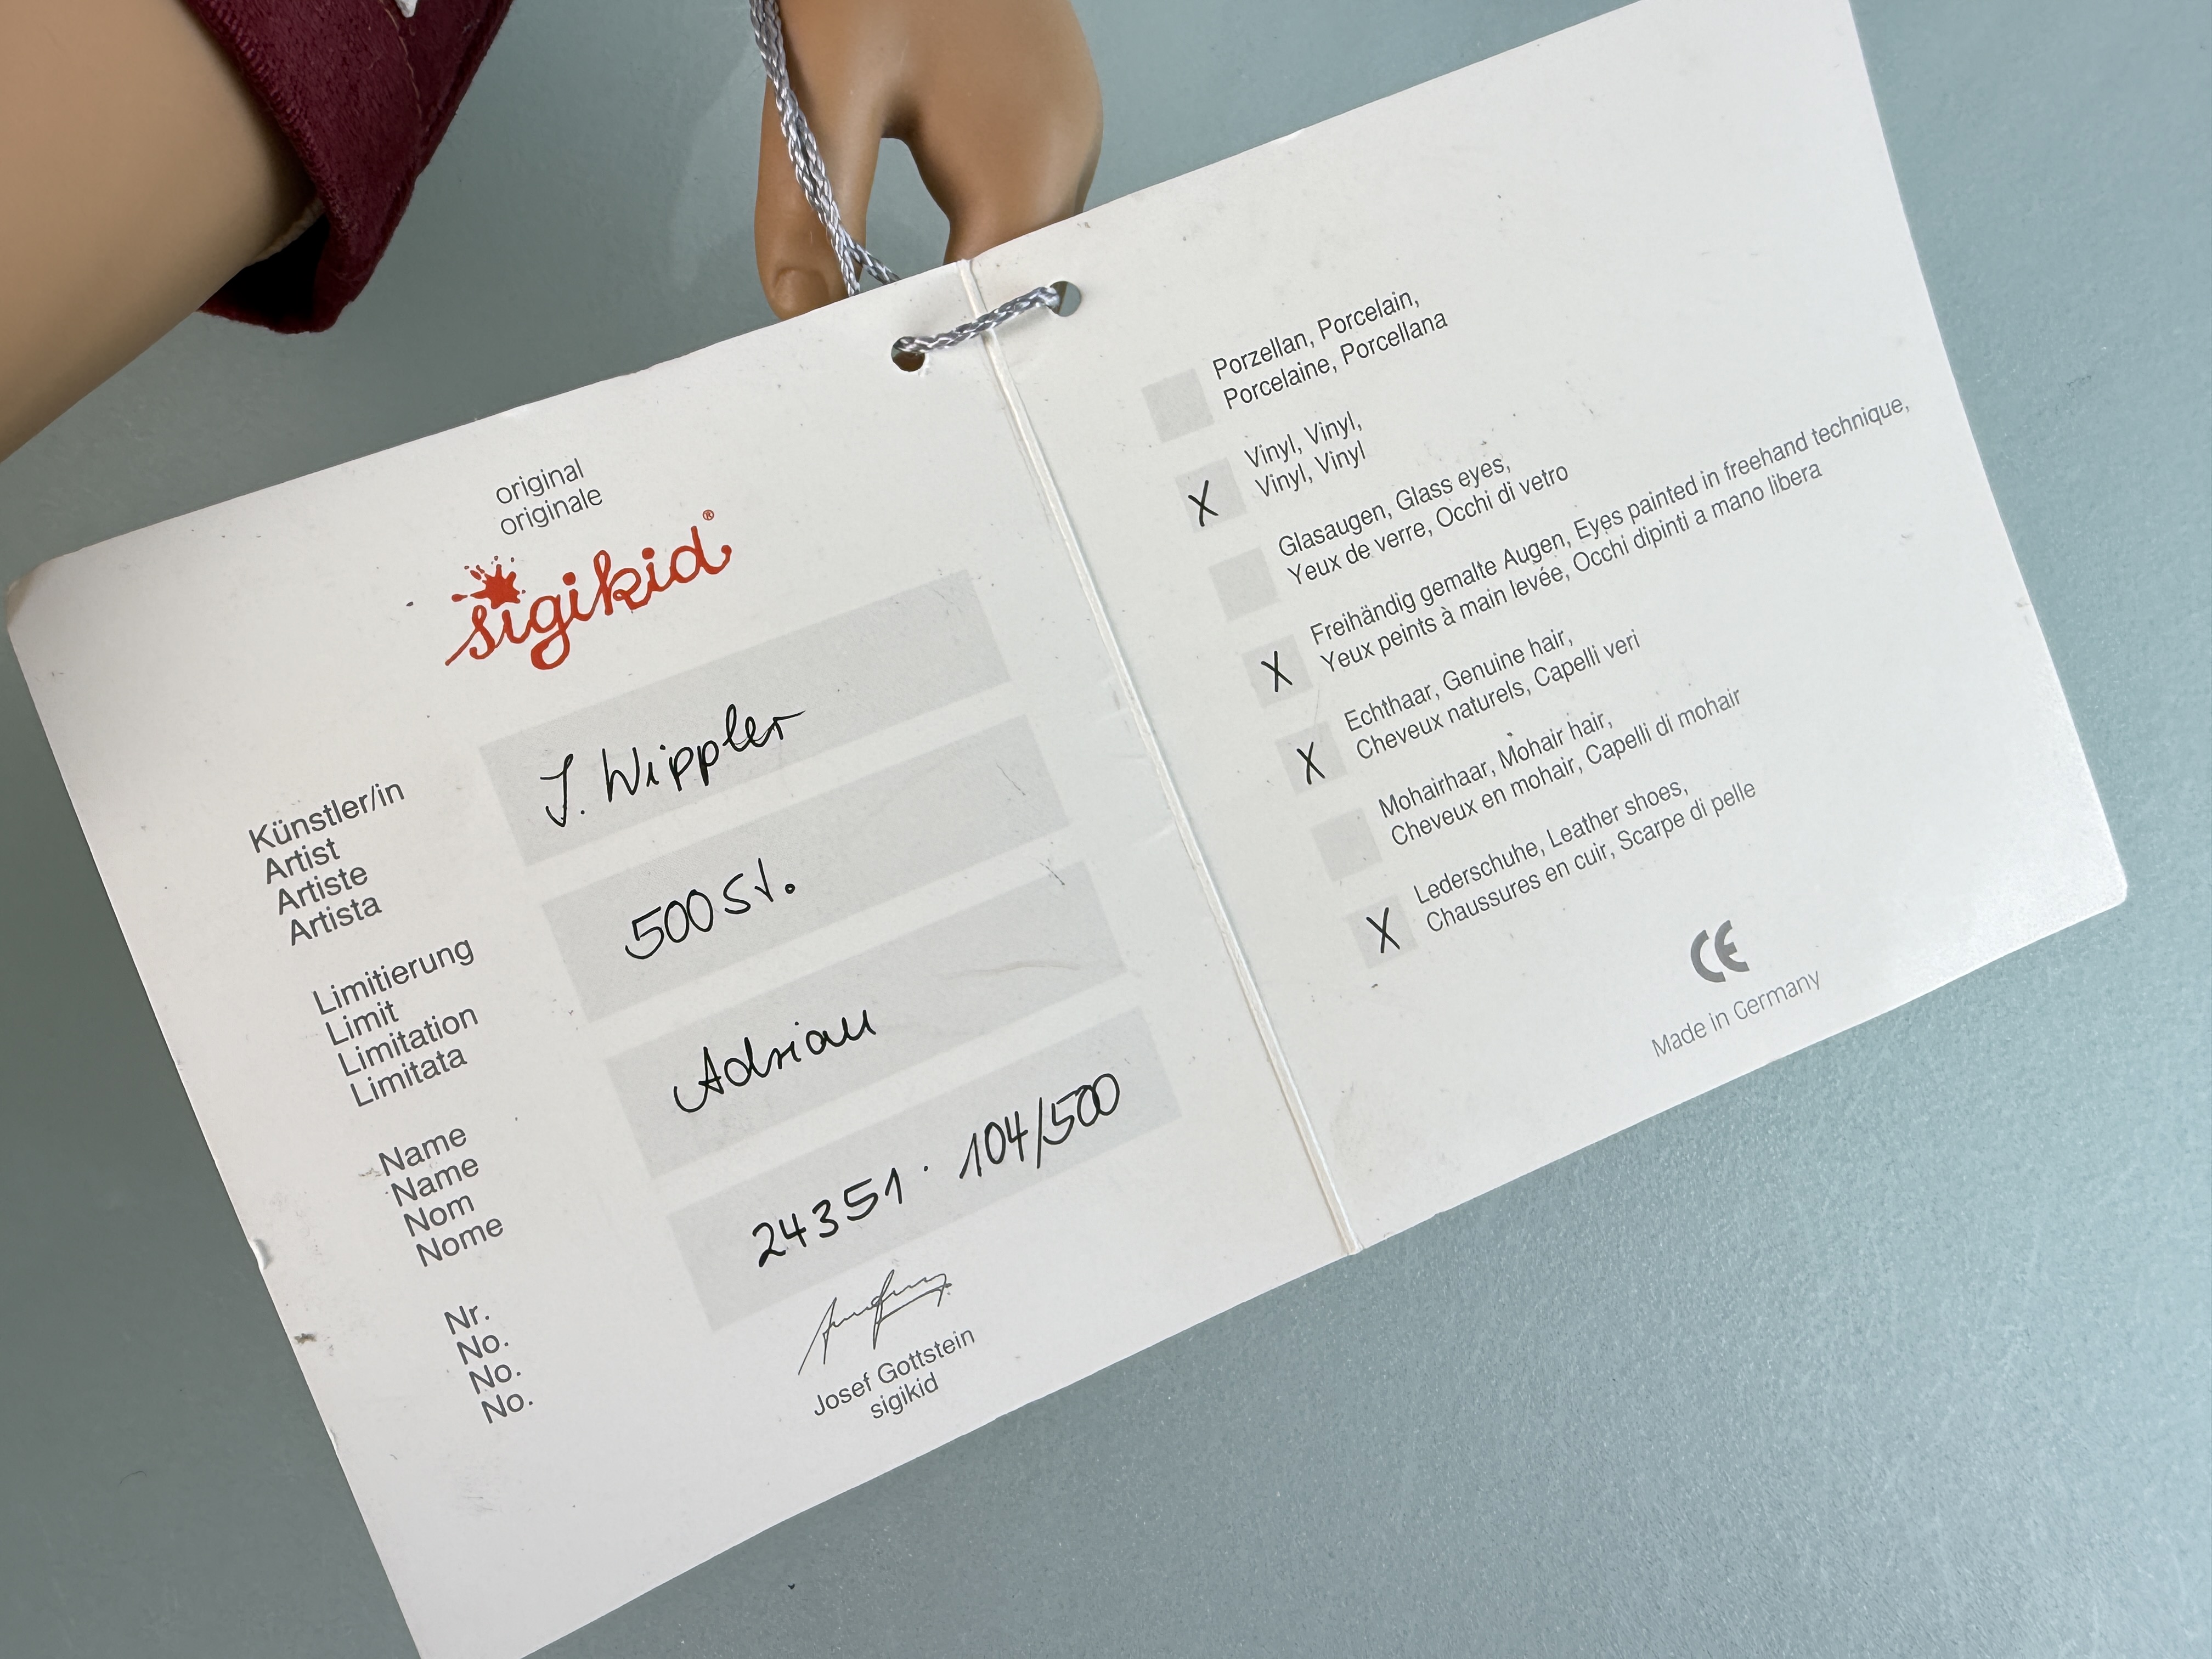 original
originale
sigikid®
Künstler/in
Artist
Artiste
Artista
J. Wippler
Limitierung
Limit
Limitation
Limitata
500 St.
Name
Name
Nom
Nome
Adrian
Nr.
No.
No.
No.
24351 · 104/500
Josef Gottstein
sigikid
Porzellan, Porcelain,
Porcelaine, Porcellana
X
Vinyl, Vinyl,
Vinyl, Vinyl
Glasaugen, Glass eyes,
Yeux de verre, Occhi di vetro
X
Freihändig gemalte Augen, Eyes painted in freehand technique,
Yeux peints à main levée, Occhi dipinti a mano libera
X
Echthaar, Genuine hair,
Cheveux naturels, Capelli veri
Mohairhaar, Mohair hair,
Cheveux en mohair, Capelli di mohair
X
Lederschuhe, Leather shoes,
Chaussures en cuir, Scarpe di pelle
CE
Made in Germany